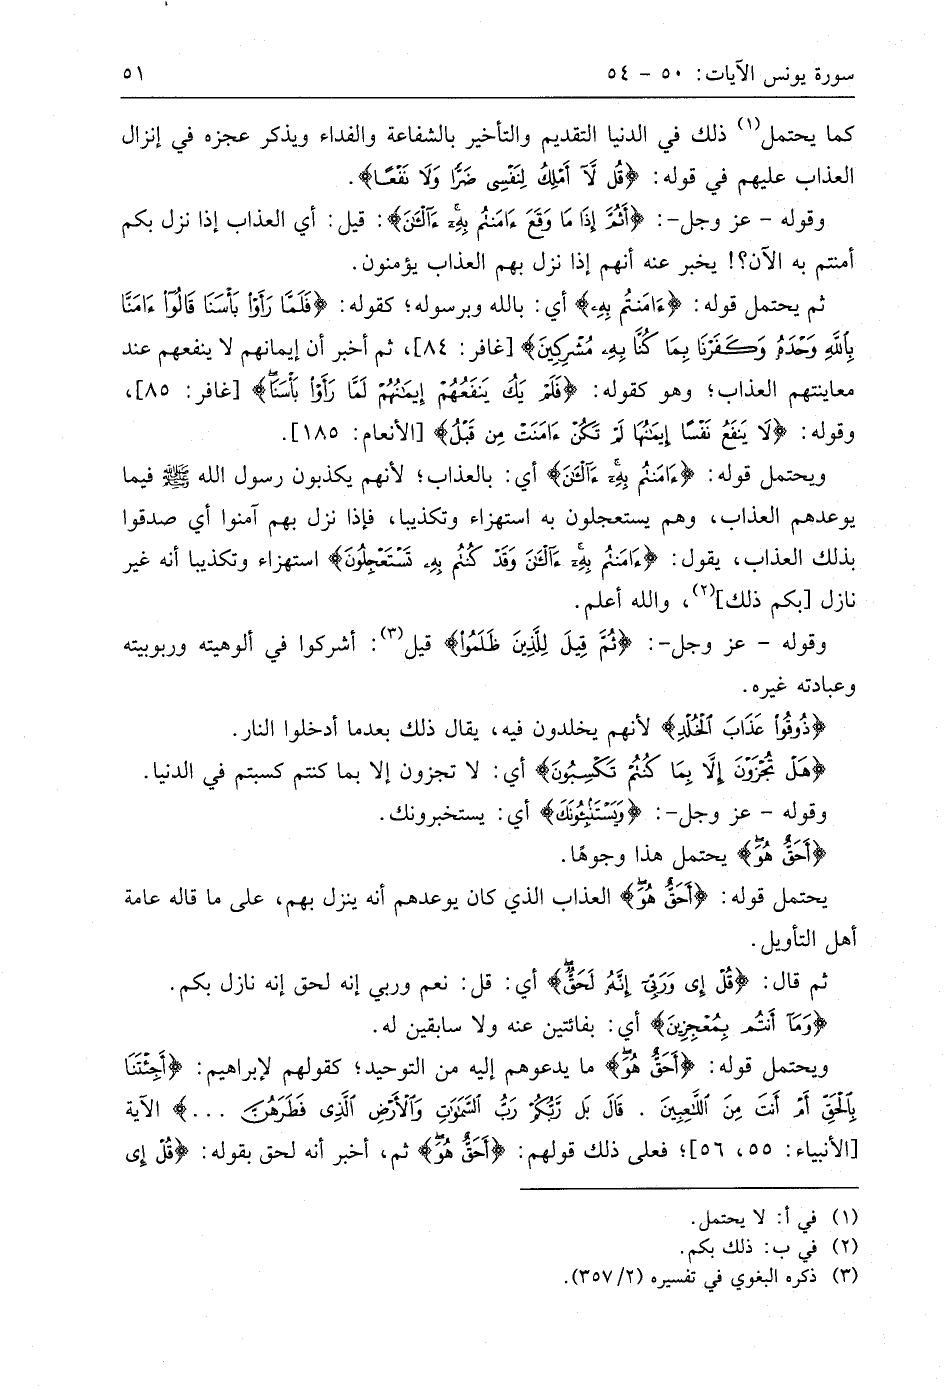 سورة يونس الآيات: ٥٠ - ٥٤ ٥١
كما يحتمل(١) ذلك في الدنيا التقديم والتأخير بالشفاعة والفداء ويذكر عجزه في إنزال
العذاب عليهم في قوله: ﴿قُل لَّآ أَمْلِكُ لِنَفْسِى ضَرًّا وَلَا نَفْعًا﴾.
وقوله - عز وجل-: ﴿أَثُمَّ إِذَا مَا وَقَعَ ءَامَنتُم بِهِۦٓ ءَآلْـَٰٔنَ﴾: قيل: أي العذاب إذا نزل بكم
أمنتم به الآن؟! يخبر عنه أنهم إذا نزل بهم العذاب يؤمنون.
ثم يحتمل قوله: ﴿ءَامَنتُم بِهِۦ﴾ أي: بالله وبرسوله؛ كقوله: ﴿فَلَمَّا رَأَوْا۟ بَأْسَنَا قَالُوٓا۟ ءَامَنَّا
بِٱللَّهِ وَحْدَهُۥ وَكَفَرْنَا بِمَا كُنَّا بِهِۦ مُشْرِكِينَ﴾ [غافر: ٨٤]، ثم أخبر أن إيمانهم لا ينفعهم عند
معاينتهم العذاب؛ وهو كقوله: ﴿فَلَمْ يَكُ يَنفَعُهُمْ إِيمَٰنُهُمْ لَمَّا رَأَوْا۟ بَأْسَنَا﴾ [غافر: ٨٥]،
وقوله: ﴿لَا يَنفَعُ نَفْسًا إِيمَٰنُهَا لَمْ تَكُنْ ءَامَنَتْ مِن قَبْلُ﴾ [الأنعام: ١٨٥].
ويحتمل قوله: ﴿ءَامَنتُم بِهِۦٓ ءَآلْـَٰٔنَ﴾ أي: بالعذاب؛ لأنهم يكذبون رسول الله ﷺ فيما
يوعدهم العذاب، وهم يستعجلون به استهزاء وتكذيبا، فإذا نزل بهم آمنوا أي صدقوا
بذلك العذاب، يقول: ﴿ءَامَنتُم بِهِۦٓ ءَآلْـَٰٔنَ وَقَدْ كُنتُم بِهِۦ تَسْتَعْجِلُونَ﴾ استهزاء وتكذيبا أنه غير
نازل [بكم ذلك](٢)، والله أعلم.
وقوله - عز وجل-: ﴿ثُمَّ قِيلَ لِلَّذِينَ ظَلَمُوا۟﴾ قيل(٣): أشركوا في ألوهيته وربوبيته
وعبادته غيره.
﴿ذُوقُوا۟ عَذَابَ ٱلْخُلْدِ﴾ لأنهم يخلدون فيه، يقال ذلك بعدما أدخلوا النار.
﴿هَلْ تُجْزَوْنَ إِلَّا بِمَا كُنتُمْ تَكْسِبُونَ﴾ أي: لا تجزون إلا بما كنتم كسبتم في الدنيا.
وقوله - عز وجل-: ﴿وَيَسْتَنۢبِـُٔونَكَ﴾ أي: يستخبرونك.
﴿أَحَقٌّ هُوَ﴾ يحتمل هذا وجوهًا.
يحتمل قوله: ﴿أَحَقٌّ هُوَ﴾ العذاب الذي كان يوعدهم أنه ينزل بهم، على ما قاله عامة
أهل التأويل.
ثم قال: ﴿قُلْ إِى وَرَبِّىٓ إِنَّهُۥ لَحَقٌّ﴾ أي: قل: نعم وربي إنه لحق إنه نازل بكم.
﴿وَمَآ أَنتُم بِمُعْجِزِينَ﴾ أي: بفائتين عنه ولا سابقين له.
ويحتمل قوله: ﴿أَحَقٌّ هُوَ﴾ ما يدعوهم إليه من التوحيد؛ كقولهم لإبراهيم: ﴿أَجِئْتَنَا
بِٱلْحَقِّ أَمْ أَنتَ مِنَ ٱللَّٰعِبِينَ . قَالَ بَل رَّبُّكُمْ رَبُّ ٱلسَّمَٰوَٰتِ وَٱلْأَرْضِ ٱلَّذِى فَطَرَهُنَّ ...﴾ الآية
[الأنبياء: ٥٥، ٥٦]؛ فعلى ذلك قولهم: ﴿أَحَقٌّ هُوَ﴾ ثم، أخبر أنه لحق بقوله: ﴿قُلْ إِى
(١) في أ: لا يحتمل.
(٢) في ب: ذلك بكم.
(٣) ذكره البغوي في تفسيره (٣٥٧/٢).